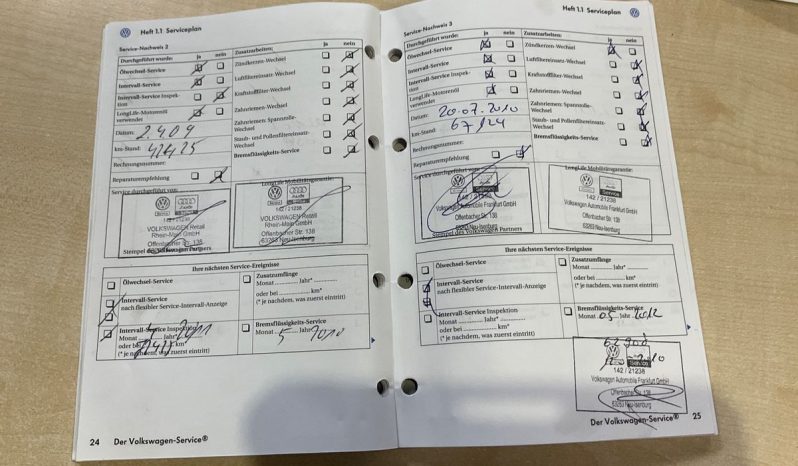 Heft 1.1 Serviceplan
Service-Nachweis 2
Durchgeführt wurde: ja nein
Ölwechsel-Service
Intervall-Service
Intervall-Service Inspek-
tion
LongLife-Motorenöl
verwendet
Datum: 2.4.09
km-Stand:
Rechnungsnummer:
Reparaturempfehlung
Zusatzarbeiten: ja nein
Zündkerzen-Wechsel
Luftfiltereinsatz-Wechsel
Kraftstofffilter-Wechsel
Zahnriemen-Wechsel
Zahnriemen: Spannrolle-
Wechsel
Staub- und Pollenfiltereinsatz-
Wechsel
Bremsflüssigkeits-Service
Service durchgeführt von:
LongLife Mobilitätsgarantie:
Audi
142 / 21238
VOLKSWAGEN Retail
Rhein-Main GmbH
Offenbacher Str. 138
63263 Neu-Isenburg
Audi
142 / 21238
VOLKSWAGEN Retail
Rhein-Main GmbH
Offenbacher Str. 138
63263 Neu-Isenburg
Stempel des Volkswagen Partners.
Ihre nächsten Service-Ereignisse
Ölwechsel-Service
Intervall-Service
nach flexibler Service-Intervall-Anzeige
Intervall-Service Inspektion
Monat Jahr* 2011
oder bei km*
(* je nachdem, was zuerst eintritt)
Zusatzumfänge
Monat ......... Jahr* .........
oder bei ............... km*
(* je nachdem, was zuerst eintritt)
Bremsflüssigkeits-Service
Monat 5 Jahr 2010
24 Der Volkswagen-Service®
Heft 1.1 Serviceplan
Service-Nachweis 3
Durchgeführt wurde: ja nein
Ölwechsel-Service
Intervall-Service
Intervall-Service Inspek-
tion
LongLife-Motorenöl
verwendet
Datum: 20.07.2010
km-Stand: 67124
Rechnungsnummer:
Reparaturempfehlung
Zusatzarbeiten: ja nein
Zündkerzen-Wechsel
Luftfiltereinsatz-Wechsel
Kraftstofffilter-Wechsel
Zahnriemen-Wechsel
Zahnriemen: Spannrolle-
Wechsel
Staub- und Pollenfiltereinsatz-
Wechsel
Bremsflüssigkeits-Service
Service durchgeführt von:
LongLife Mobilitätsgarantie:
Service
142 / 21238
Volkswagen Automobile Frankfurt GmbH
Offenbacher Str. 138
63263 Neu-Isenburg
Service
142 / 21238
Volkswagen Automobile Frankfurt GmbH
Offenbacher Str. 138
63263 Neu-Isenburg
Stempel des Volkswagen Partners
Ihre nächsten Service-Ereignisse
Ölwechsel-Service
Intervall-Service
nach flexibler Service-Intervall-Anzeige
Intervall-Service Inspektion
Monat ......... Jahr* .........
oder bei ............... km*
(* je nachdem, was zuerst eintritt)
Zusatzumfänge
Monat ......... Jahr* .........
oder bei ............... km*
(* je nachdem, was zuerst eintritt)
Bremsflüssigkeits-Service
Monat 05 Jahr 2012
Service
142 / 21238
Volkswagen Automobile Frankfurt GmbH
Offenbacher Str. 138
63263 Neu-Isenburg
Der Volkswagen-Service® 25